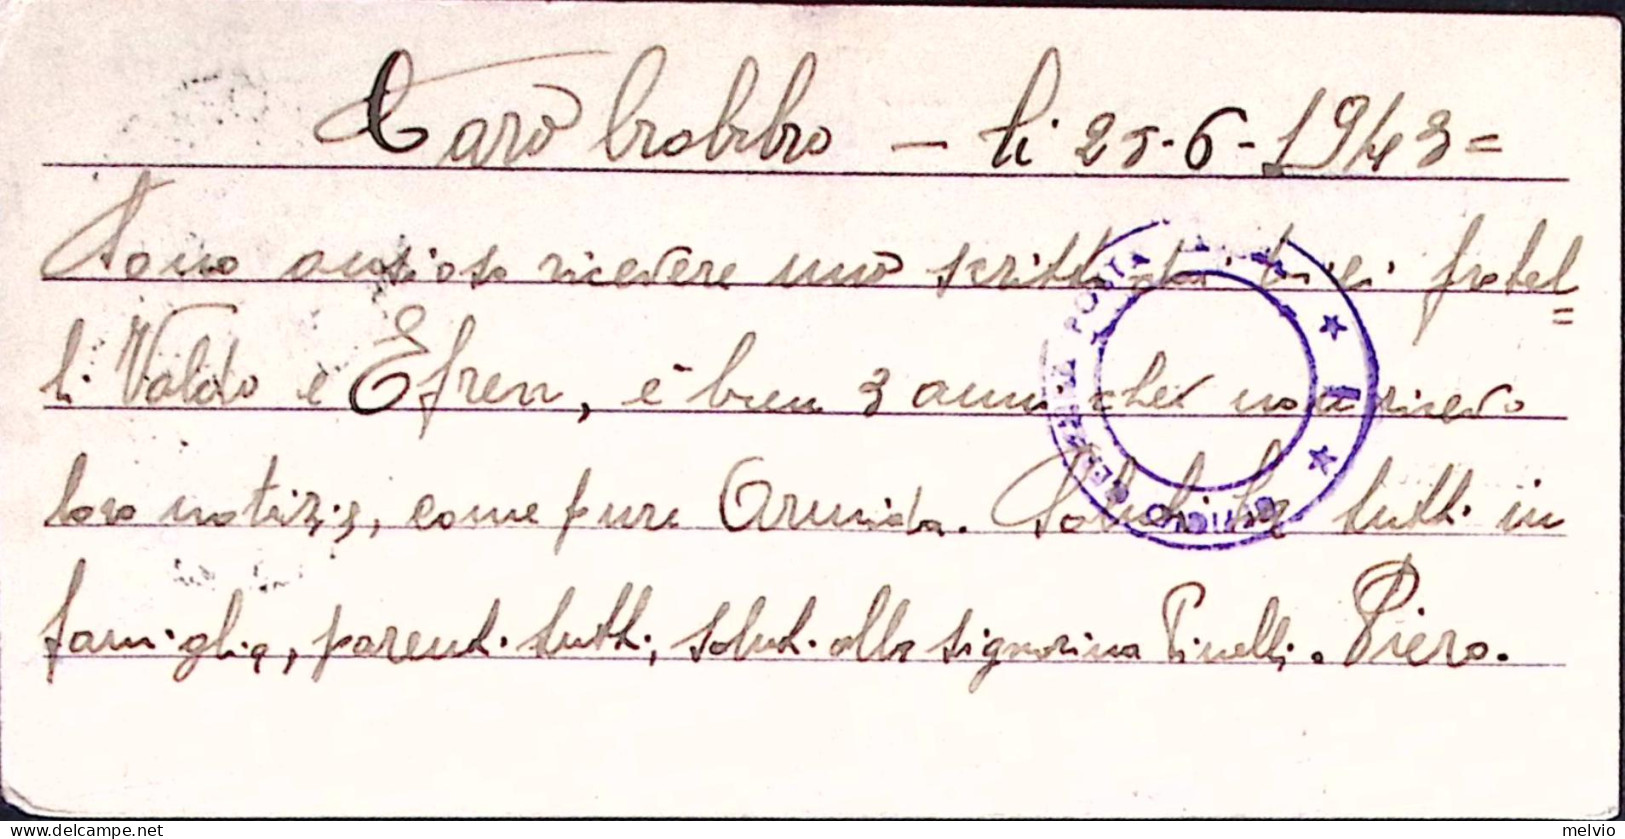 Caro babbo - li 25-6-1943=
Sono ansioso ricevere uno scritto dai miei fratel=
li Valdo e Efren, è ben 3 anni che non ricevo
loro notizie, come pure Armida. Saluti a tutti in
famiglia, parenti tutti, saluti alla signorina Pinelli. Piero.
POSTA
melvio